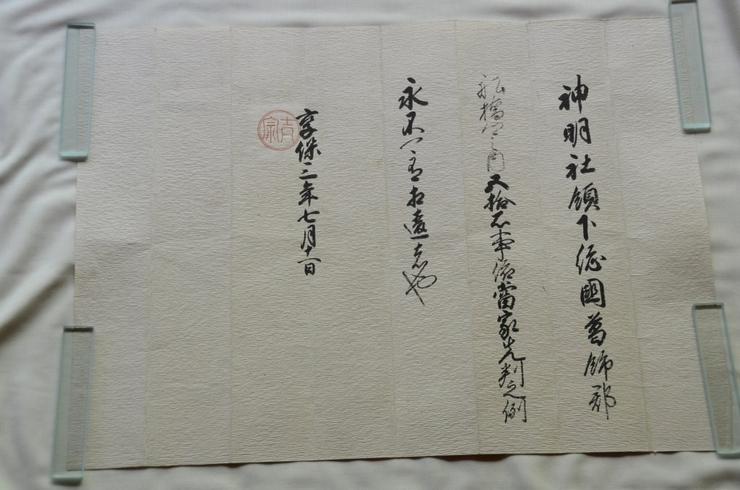 神明社領下総國葛飾郡
船橋之内五拾石事依當家先判之例
永不可有相違者也
享保三年七月十一日
吉宗